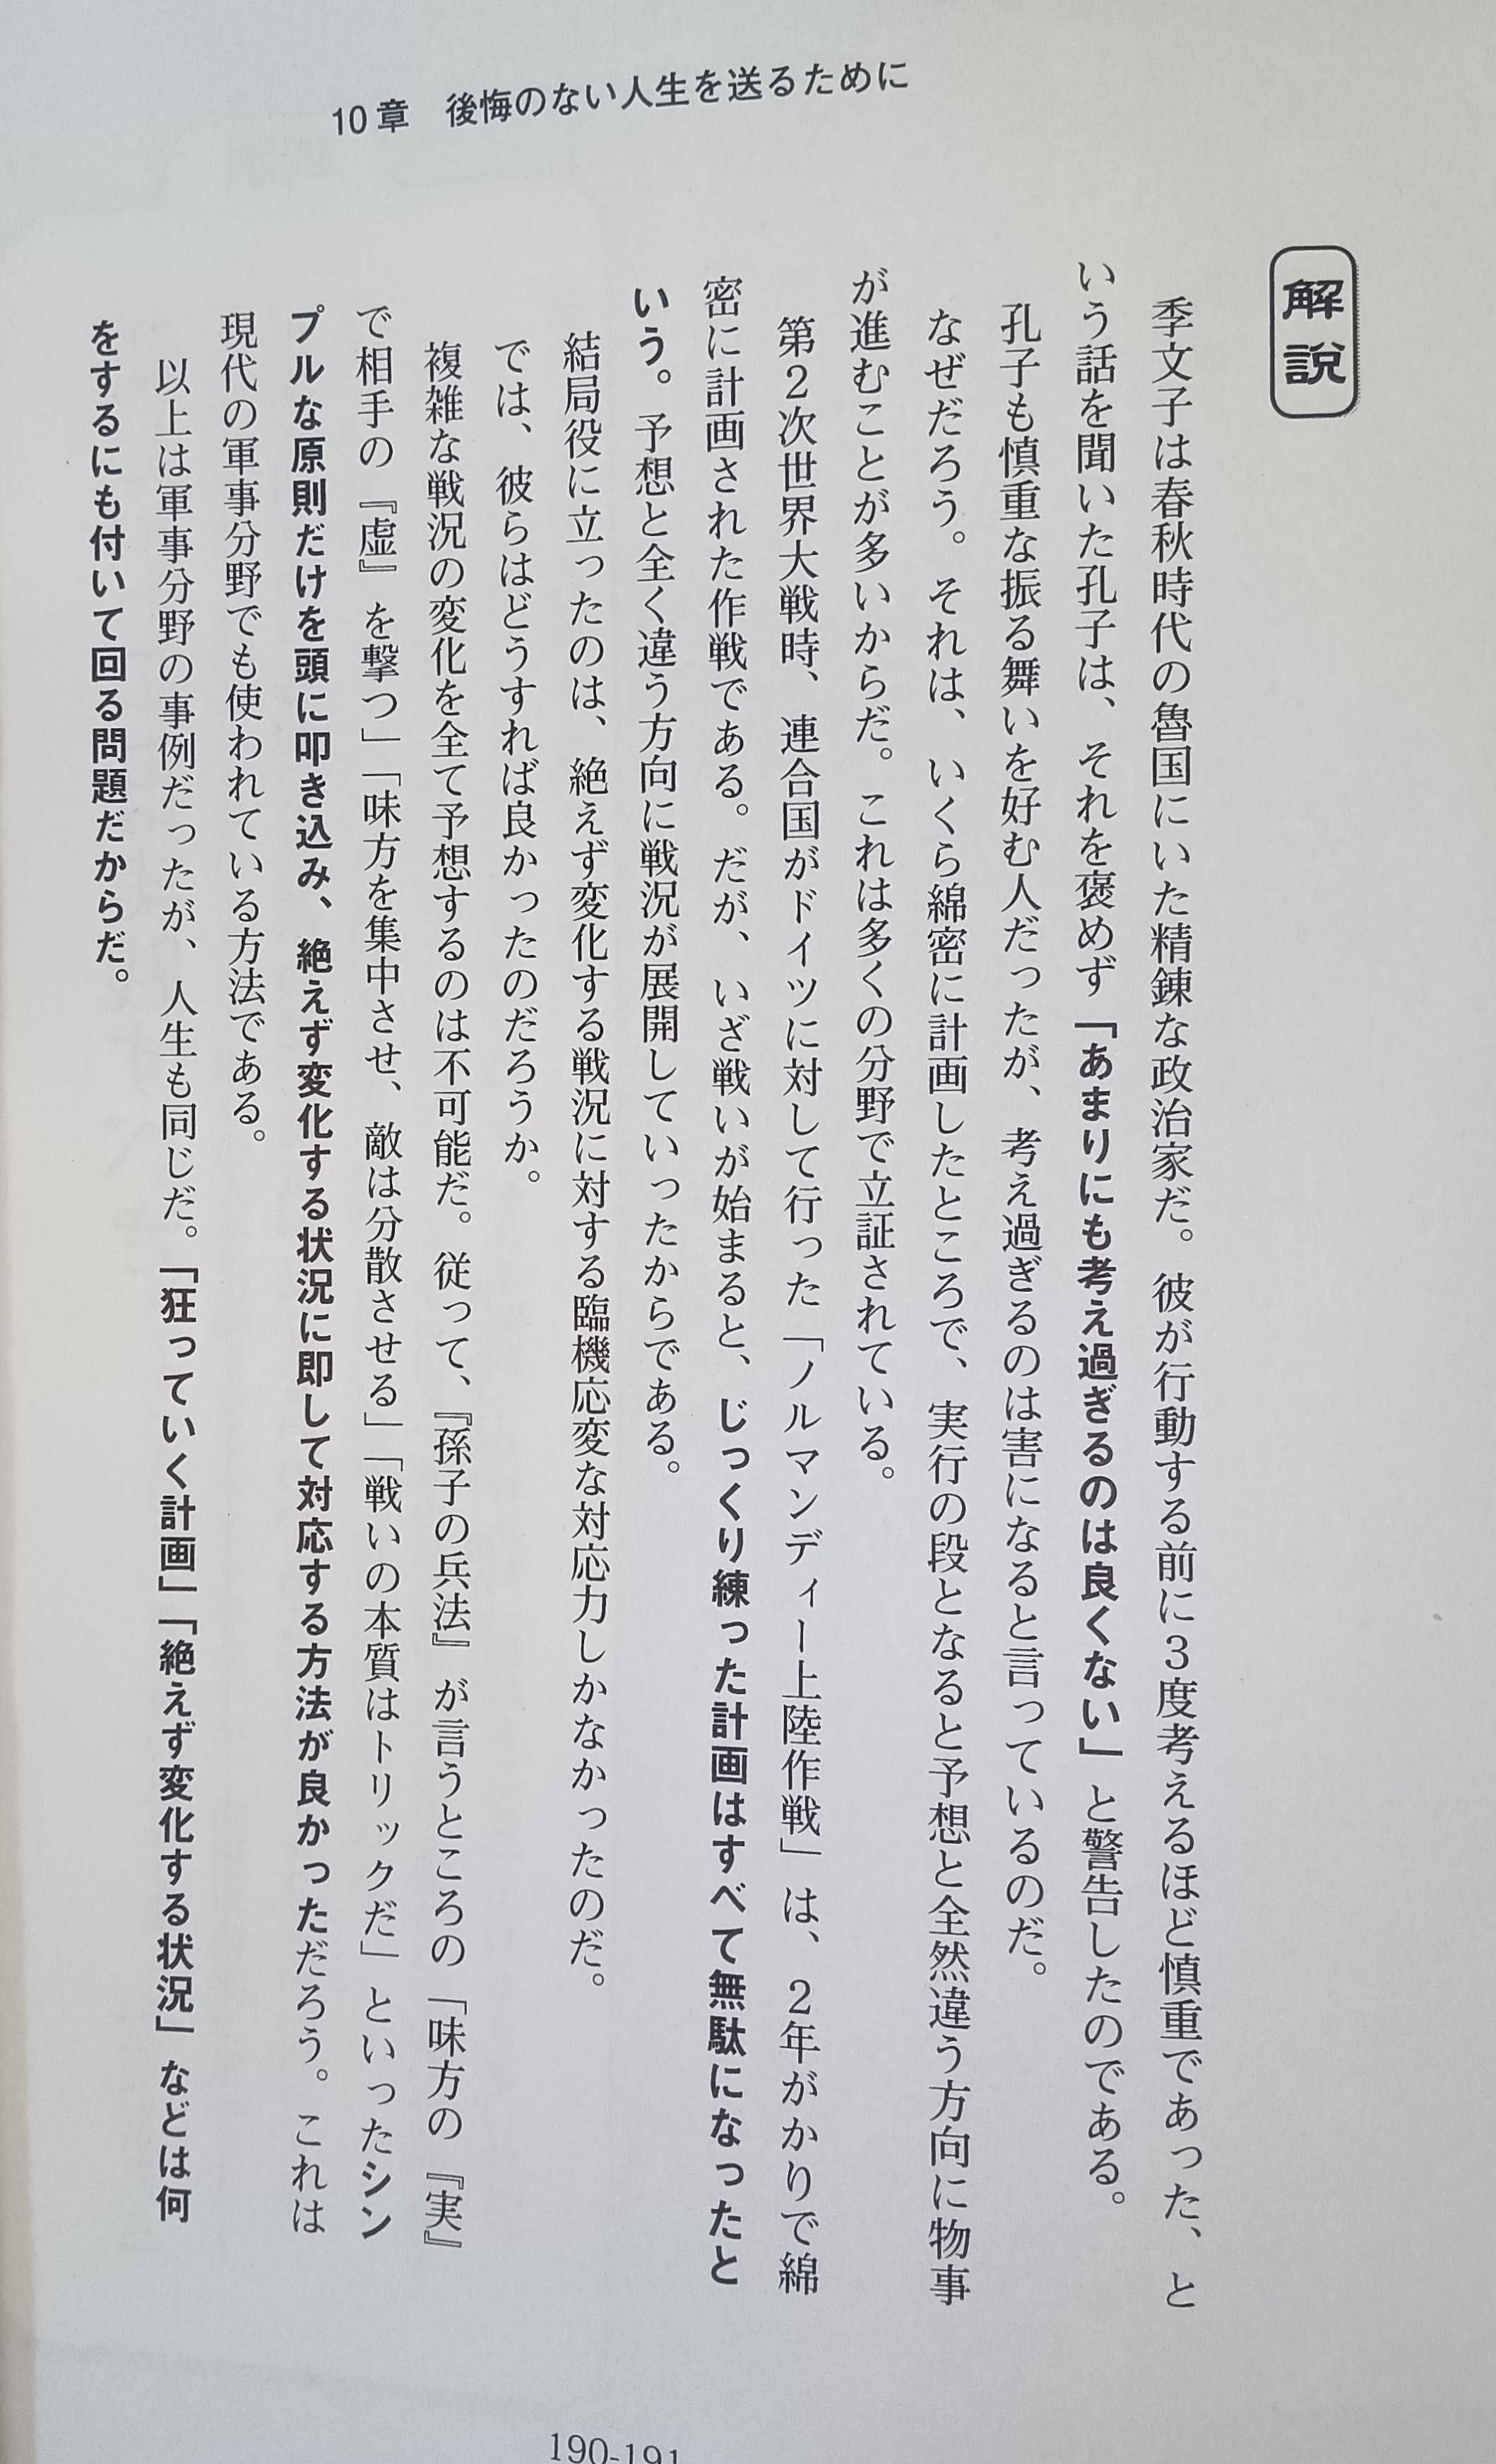 10章　後悔のない人生を送るために
解説
季文子は春秋時代の魯国にいた精錬な政治家だ。彼が行動する前に3度考えるほど慎重であった、と
いう話を聞いた孔子は、それを褒めず「あまりにも考え過ぎるのは良くない」と警告したのである。
孔子も慎重な振る舞いを好む人だったが、考え過ぎるのは害になると言っているのだ。
なぜだろう。それは、いくら綿密に計画したところで、実行の段となると予想と全然違う方向に物事
が進むことが多いからだ。これは多くの分野で立証されている。
第2次世界大戦時、連合国がドイツに対して行った「ノルマンディー上陸作戦」は、2年がかりで綿
密に計画された作戦である。だが、いざ戦いが始まると、じっくり練った計画はすべて無駄になったと
いう。予想と全く違う方向に戦況が展開していったからである。
結局役に立ったのは、絶えず変化する戦況に対する臨機応変な対応力しかなかったのだ。
では、彼らはどうすれば良かったのだろうか。
複雑な戦況の変化を全て予想するのは不可能だ。従って、『孫子の兵法』が言うところの「味方の『実』
で相手の『虚』を撃つ」「味方を集中させ、敵は分散させる」「戦いの本質はトリックだ」といったシン
プルな原則だけを頭に叩き込み、絶えず変化する状況に即して対応する方法が良かっただろう。これは
現代の軍事分野でも使われている方法である。
以上は軍事分野の事例だったが、人生も同じだ。「狂っていく計画」「絶えず変化する状況」などは何
をするにも付いて回る問題だからだ。
190-191